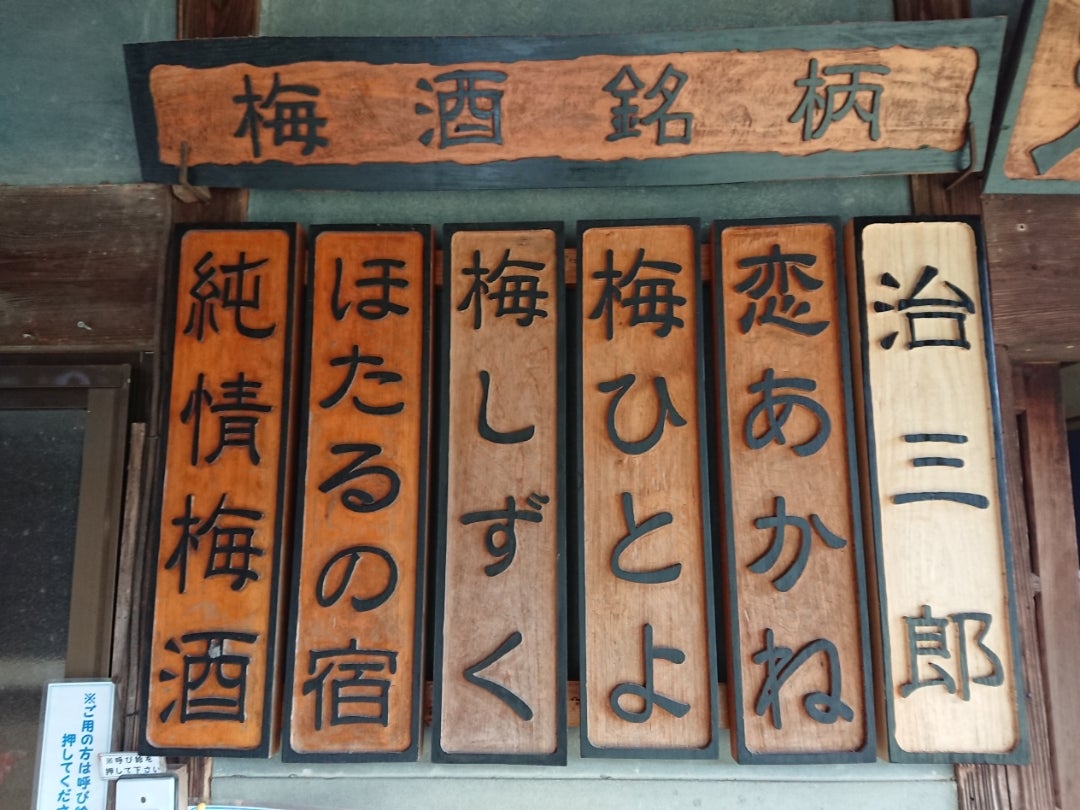 梅酒銘柄
治三郎
恋あかね
梅ひとよ
梅しずく
ほたるの宿
純情梅酒
※ご用の方は呼び
押してくださ
※呼び鈴を
押して下さい